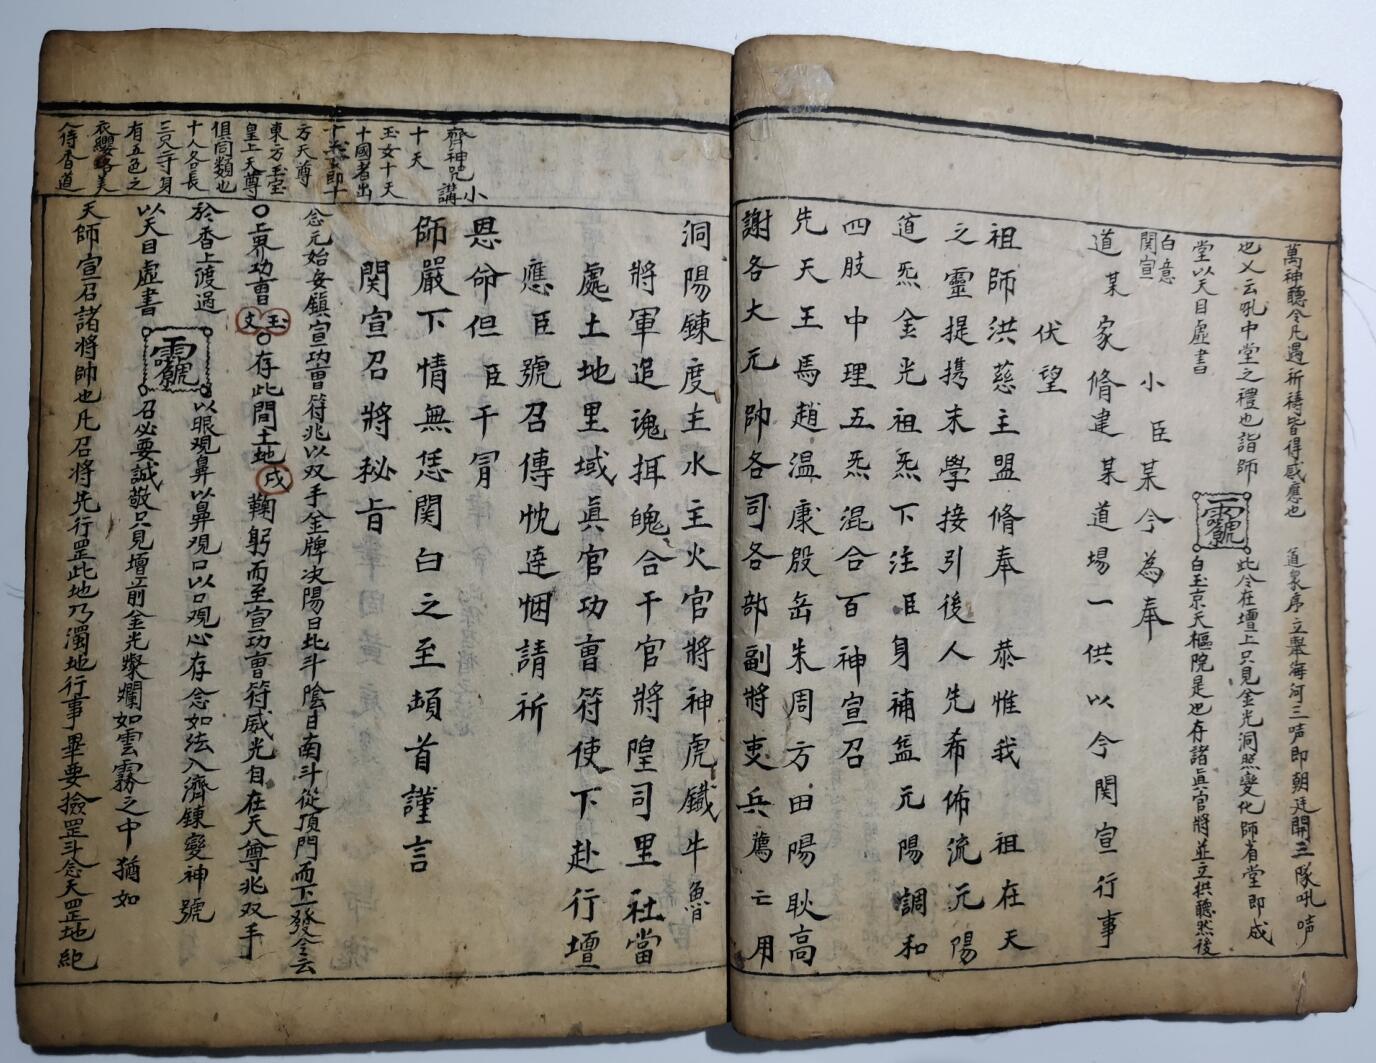 萬神聽令凡遇祈禱皆得感應也　道衆序立鼜海河三吽即朝廷開三隊吼吽
也又云吼中堂之禮也詣師
堂以天目虛書
此令在壇上只見金光洞照變化師省堂即成
白玉京天樞院是也存諸眞官將並立拱聽然後
白意
関宣
小臣某今為奉
道某家脩建某道場一供以今関宣行事
伏望
祖師洪慈主盟脩奉　恭惟我　祖在天
之靈提携末學接引後人先希佈流元陽
道炁金光祖炁下注臣身補益元陽調和
四肢中理五炁混合百神宣召
先天王馬趙温康殷岳朱周方田陽耿高
謝各大元帥各司各部副將吏兵薦亡用
洞陽鍊度主水主火官將神虎鐵牛魯
將軍追魂揖魄合干官將隍司里社當
處土地里域眞官功曹符使下赴行壇
應臣號召傳忱達悃請祈
恩命但臣干冐
師嚴下情無恁関白之至頓首謹言
関宣召將秘旨
齊神咒小講
十天
玉女十天
十國者出
方天尊
東方玉宝
皇上天尊
俱同類也
十人各長
三尺二寸身
有五色之
衣纓絡美
人侍香道
念元始安鎮宣功曹符兆以双手金牌决陽日北斗陰日南斗從頂門而下發令云
○上界功曹玉文○存此間土地戌鞠躬而至宣功曹符威光自在天尊兆双手
於香上渡過　以眼观鼻以鼻观口以口观心存念如法入濟鍊變神號
以天目虛書　召必要誠敬只見壇前金光燦爛如雲霧之中猶如
天師宣召諸將帥也凡召將先行罡此地乃濁地行事畢要撿罡斗念天罡地紀